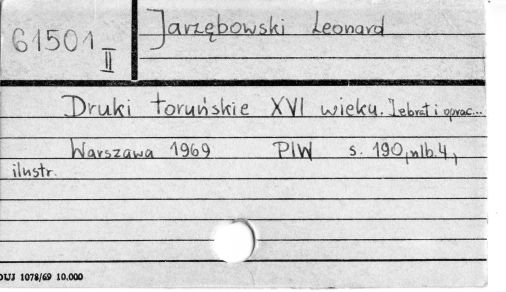 61501
II
Jarzębowski Leonard
Druki toruńskie XVI wieku. Zebrał i oprac...
Warszawa 1969 PIW s. 190, nlb. 4,
ilustr.
DUJ 1078/69 10.000